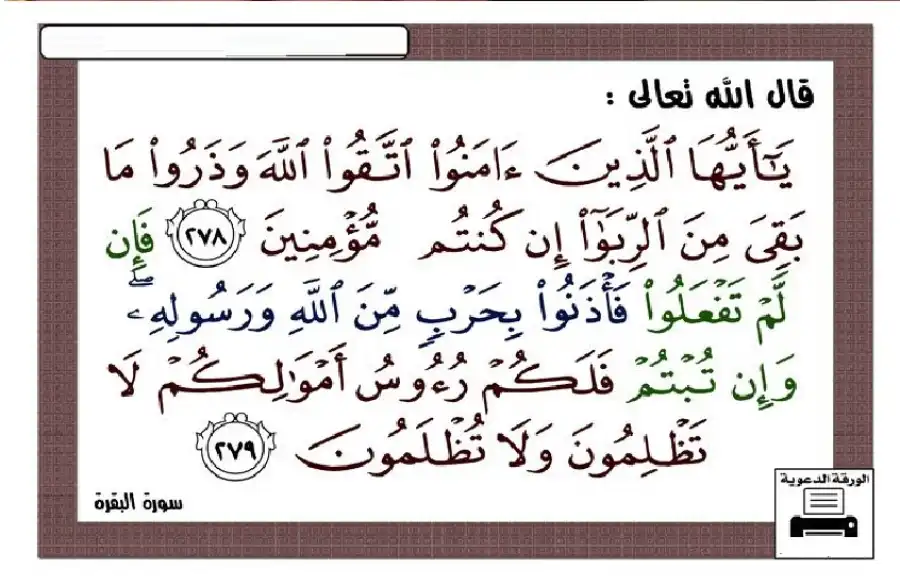 قال الله تعالى :
يَـٰٓأَيُّهَا ٱلَّذِينَ ءَامَنُوا۟ ٱتَّقُوا۟ ٱللَّهَ وَذَرُوا۟ مَا
بَقِىَ مِنَ ٱلرِّبَوٰٓا۟ إِن كُنتُم مُّؤْمِنِينَ ٢٧٨ فَإِن
لَّمْ تَفْعَلُوا۟ فَأْذَنُوا۟ بِحَرْبٍ مِّنَ ٱللَّهِ وَرَسُولِهِۦ ۖ
وَإِن تُبْتُمْ فَلَكُمْ رُءُوسُ أَمْوَٰلِكُمْ لَا
تَظْلِمُونَ وَلَا تُظْلَمُونَ ٢٧٩
سورة البقرة
الورقة الدعوية